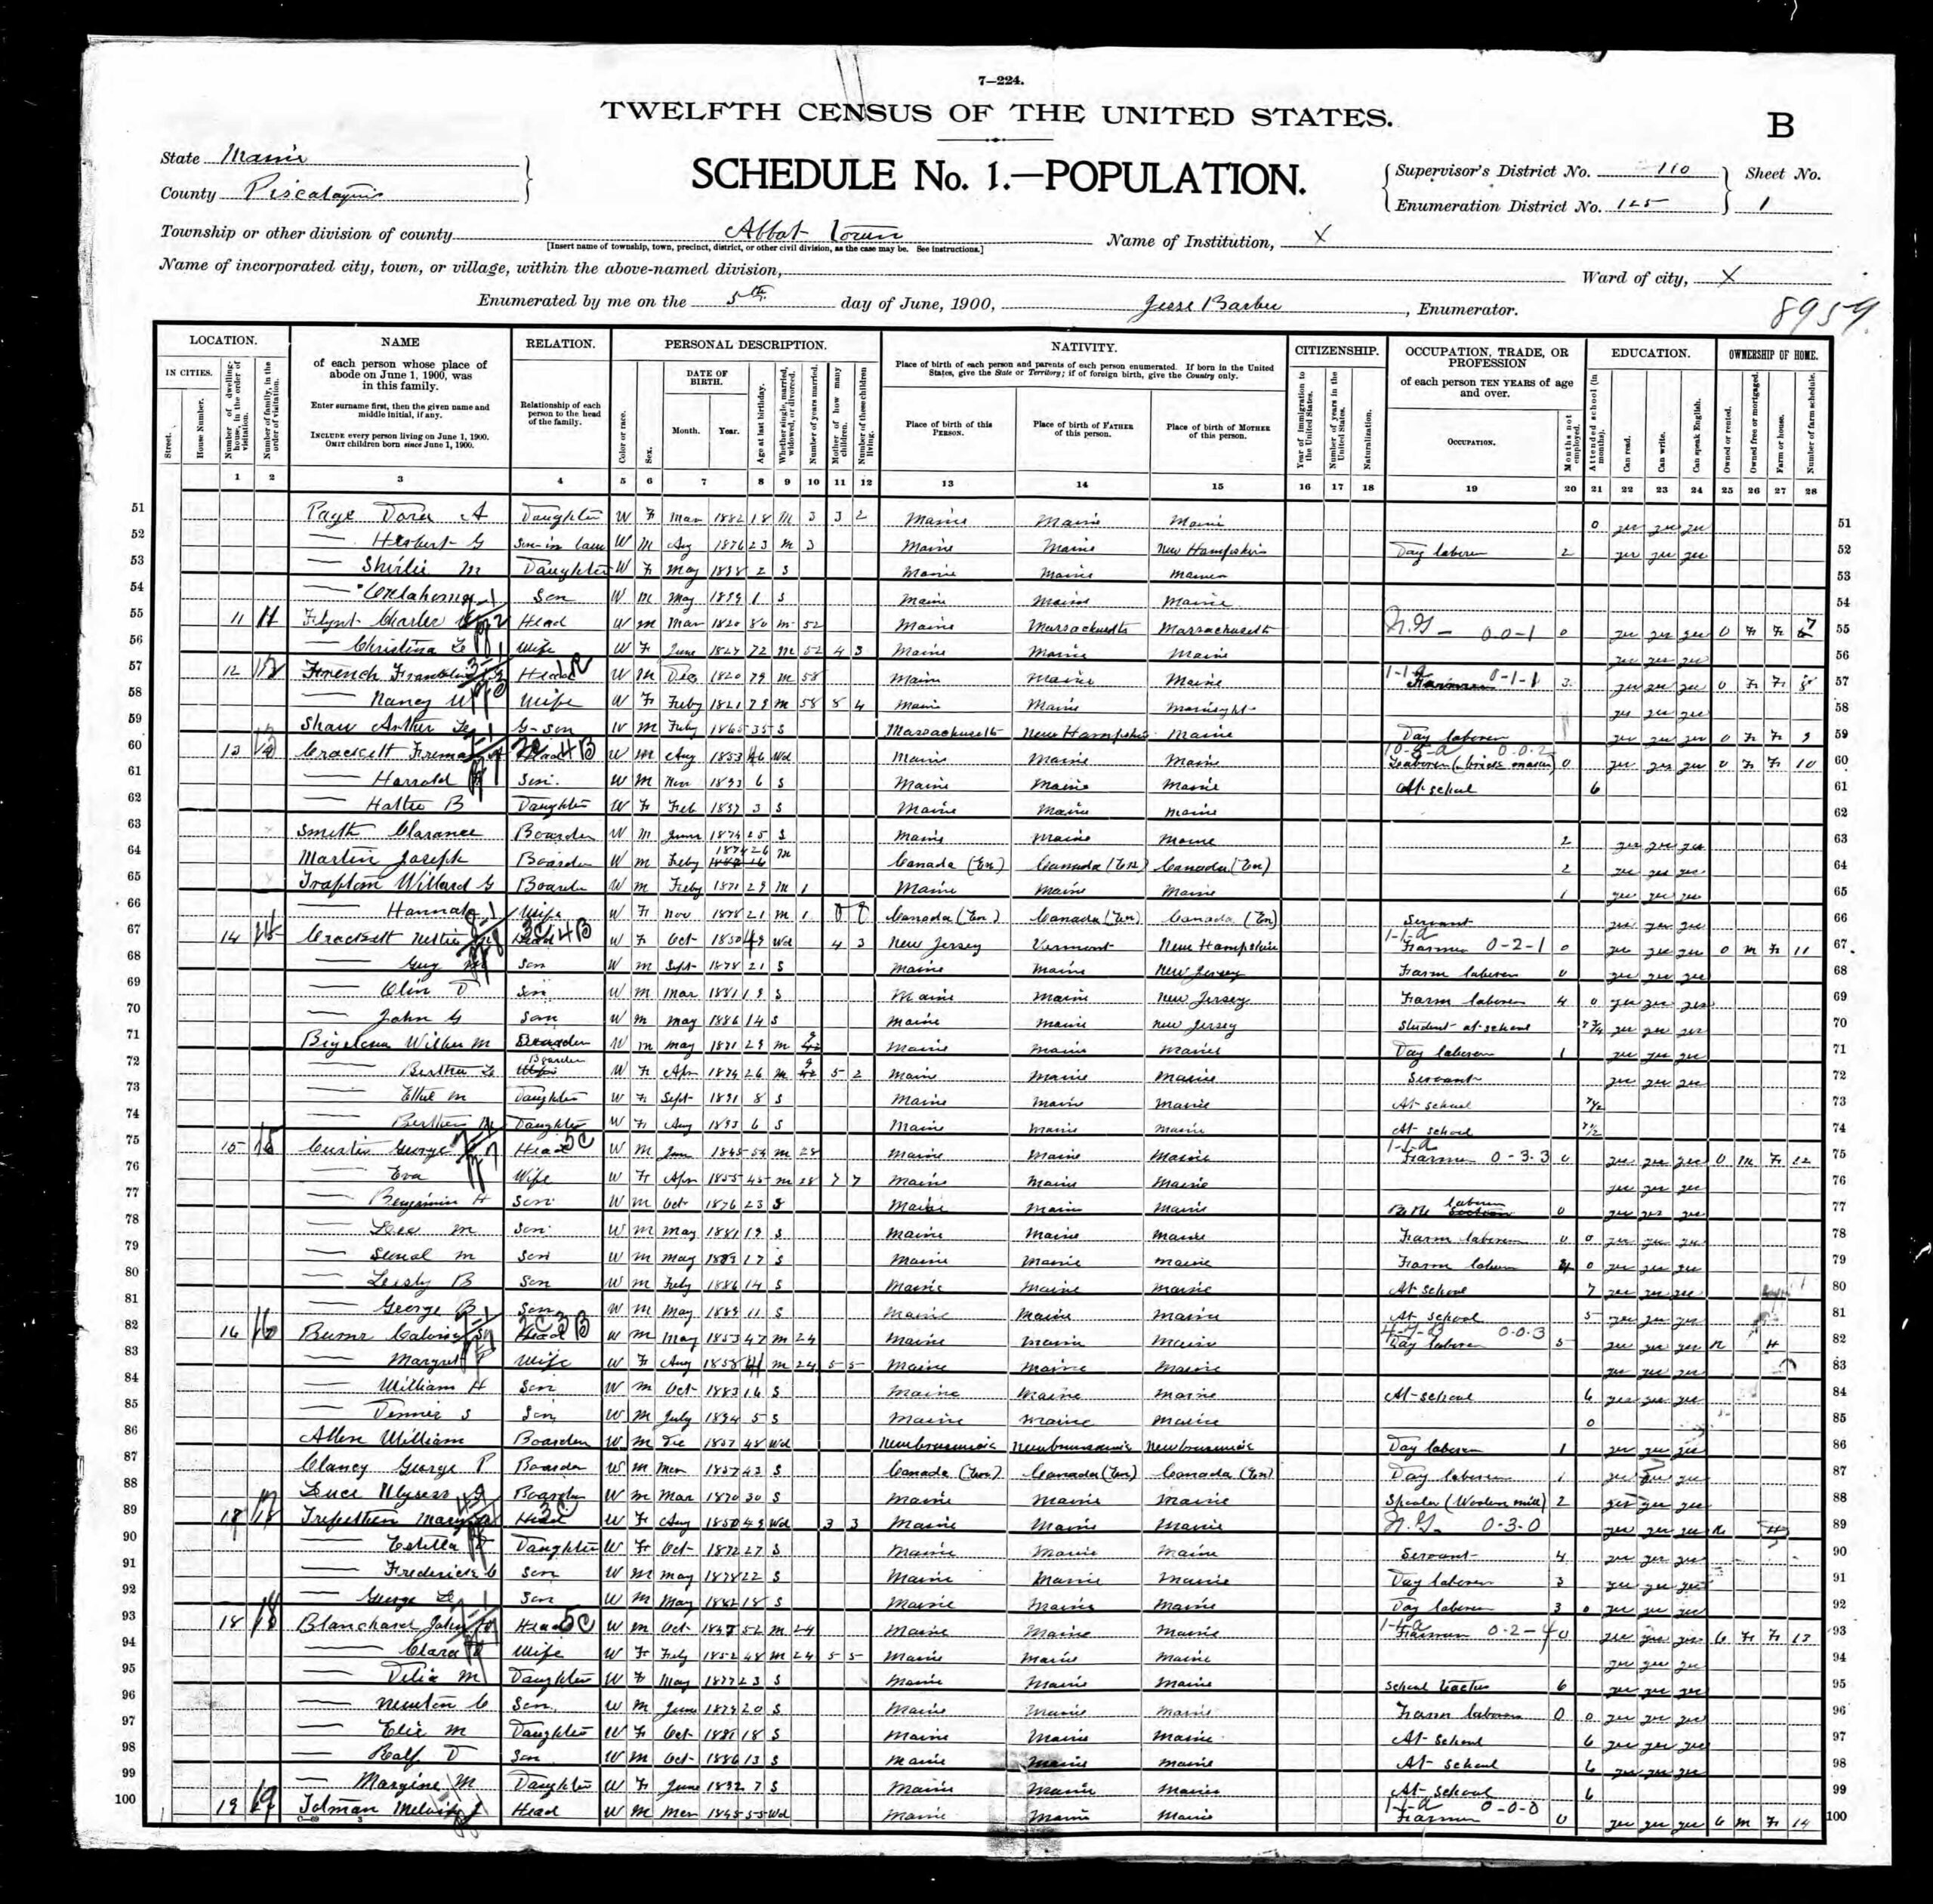 7—224.
TWELFTH CENSUS OF THE UNITED STATES.
B
State Maine
SCHEDULE No. 1.—POPULATION.
County Piscataquis
Supervisor's District No. 110
Sheet No.
Enumeration District No. 125
1
Township or other division of county Abbot Town
Name of Institution, X
[Insert name of township, town, precinct, district, or other civil division, as the case may be. See instructions.]
Name of incorporated city, town, or village, within the above-named division,
Ward of city, X
Enumerated by me on the 5th day of June, 1900, Jesse Barber, Enumerator.
8959
LOCATION. NAME RELATION. PERSONAL DESCRIPTION. NATIVITY. CITIZENSHIP. OCCUPATION, TRADE, OR PROFESSION EDUCATION. OWNERSHIP OF HOME.
IN CITIES. Street. House Number. Number of dwelling-house, in the order of visitation. Number of family, in the order of visitation.
of each person whose place of abode on June 1, 1900, was in this family.
Enter surname first, then the given name and middle initial, if any.
INCLUDE every person living on June 1, 1900. OMIT children born since June 1, 1900.
Relationship of each person to the head of the family.
Color or race. Sex. DATE OF BIRTH. Month. Year. Age at last birthday. Whether single, married, widowed, or divorced. Number of years married. Mother of how many children. Number of these children living.
Place of birth of each person and parents of each person enumerated. If born in the United States, give the State or Territory; if of foreign birth, give the Country only.
Place of birth of this PERSON. Place of birth of FATHER of this person. Place of birth of MOTHER of this person.
Year of immigration to the United States. Number of years in the United States. Naturalization.
of each person TEN YEARS of age and over.
OCCUPATION. Months not employed.
Attended school (in months). Can read. Can write. Can speak English. Owned or rented. Owned free or mortgaged. Farm or house. Number of farm schedule.
1 2 3 4 5 6 7 8 9 10 11 12 13 14 15 16 17 18 19 20 21 22 23 24 25 26 27 28
51 Page Dora A Daughter W F Mar 1882 18 M 3 3 2 Maine Maine Maine 0 yes yes yes 51
52 Herbert G Son in law W M Aug 1876 23 M 3 Maine Maine New Hampshire Day laborer 2 yes yes yes 52
53 Shirlie M Daughter W F May 1898 2 S Maine Maine Maine 53
54 Son W M May 1899 1 S Maine Maine Maine 54
55 11 11 Flynt Charles Head W M Mar 1820 80 M 52 Maine Massachusetts Massachusetts N.G. 0-0-1 0 yes yes yes O F F 7 55
56 Christina Wife W F June 72 M 52 4 3 Maine Maine Maine yes yes yes 56
57 12 French Franklin Head W M Dec 1820 79 M 58 Maine Maine Maine 1-1-a Farmer 0-1-1 3 yes yes yes O F F 8 57
58 Nancy Wife W F Feby 1821 79 M 58 8 4 Maine Maine yes yes yes 58
59 Shaw Arther G-son W M Feby 1865 35 S Massachusetts New Hampshire Maine Day laborer yes yes yes O F F 9 59
60 13 Crackett Head W M Aug 1853 46 Wd Maine Maine Maine 0-0-2 Laborer (brick mason) 0 yes yes yes O F F 10 60
61 Harrold Son W M Nov 1893 6 S Maine Maine Maine At school 6 61
62 Hattie B Daughter W F Feb 1897 3 S Maine Maine Maine 62
63 Smith Clarance Boarder W M June 1874 25 S Maine Maine Maine 2 yes yes yes 63
64 Martin Joseph Boarder W M Feby 1874 26 M Canada (En) Canada (En) Canada (En) 2 yes yes yes 64
65 Willard G Boarder W M Feby 1871 29 M 1 Maine Maine Maine 1 yes yes yes 65
66 Hannah Wife W F Nov 1878 21 M 1 0 0 Canada (En) Canada (En) Canada (En) Servant yes yes yes 66
67 14 Crackett Nettie Head W F Oct 1850 49 Wd 4 3 New Jersey Vermont New Hampshire 1-1-a Farmer 0-2-1 0 yes yes yes O M F 11 67
68 Guy Son W M Sept 1878 21 S Maine Maine New Jersey Farm laborer 0 yes yes yes 68
69 Olin D Son W M Mar 1881 19 S Maine Maine New Jersey Farm laborer 4 0 yes yes yes 69
70 John G Son W M May 1886 14 S Maine Maine New Jersey Student at school yes yes yes 70
71 Bigelow Wilber M Boarder W M May 1871 29 M 9 Maine Maine Maine Day laborer 1 yes yes yes 71
72 Bertha L Boarder W F Apr 1874 26 M 9 5 2 Maine Maine Maine Servant yes yes yes 72
73 Ethel M Daughter W F Sept 1891 8 S Maine Maine Maine At school 7½ 73
74 Bertha Daughter W F Aug 1893 6 S Maine Maine Maine At school 7½ 74
75 15 15 George Head W M Jan 1845 54 M 28 Maine Maine Maine 1-1-a Farmer 0-3-3 0 yes yes yes O M F 12 75
76 Eva Wife W F Apr 1855 45 M 28 7 7 Maine Maine Maine yes yes yes 76
77 Benjamin H Son W M Oct 1876 23 S Maine Maine Maine laborer 0 yes yes yes 77
78 Lee M Son W M May 1881 19 S Maine Maine Maine Farm laborer 0 0 yes yes yes 78
79 M Son W M May 17 S Maine Maine Maine Farm laborer 0 yes yes yes 79
80 Lesly B Son W M Feby 1886 14 S Maine Maine Maine At school 7 yes yes yes 80
81 George B Son W M May 1889 11 S Maine Maine Maine At school 5 yes yes yes 81
82 16 16 Head W M May 1853 47 M 24 Maine Maine Maine 0-0-3 Day laborer 5 yes yes yes R H 82
83 Margret Wife W F Aug 1858 41 M 24 5 5 Maine Maine Maine yes yes yes 83
84 William H Son W M Oct 1883 16 S Maine Maine Maine At school 6 yes yes yes 84
85 Dennis S Son W M July 1894 5 S Maine Maine Maine 0 85
86 Allen William Boarder W M Dec 48 Wd Newbrunswic Newbrunswic Newbrunswic Day laborer 1 yes yes yes 86
87 Clancy George P Boarder W M 1857 43 S Canada (En) Canada (En) Canada (En) Day laborer 1 yes yes yes 87
88 Luce Ulysess Boarder W M Mar 1870 30 S Maine Maine Maine Spooler (Woolen mill) 2 yes yes yes 88
89 17 17 Trefethen Mary Head W F Aug 1850 49 Wd 3 3 Maine Maine Maine N.G. 0-3-0 yes yes yes R H 89
90 Estella Daughter W F Oct 1872 27 S Maine Maine Maine Servant 4 yes yes yes 90
91 Frederick C Son W M May 1878 22 S Maine Maine Maine Day laborer 3 yes yes yes 91
92 George Son W M May 1882 18 S Maine Maine Maine Day laborer 3 0 yes yes yes 92
93 18 18 Blanchard John Head W M Oct 1847 52 M 24 Maine Maine Maine 1-1-a Farmer 0-2-4 0 yes yes yes O F F 13 93
94 Clara Wife W F Feby 1852 48 M 24 5 5 Maine Maine Maine yes yes yes 94
95 Delia M Daughter W F May 1877 23 S Maine Maine Maine School teacher 6 yes yes yes 95
96 Newton C Son W M June 1879 20 S Maine Maine Maine Farm laborer 0 0 yes yes yes 96
97 Elie M Daughter W F Oct 1881 18 S Maine Maine Maine At school 6 yes yes yes 97
98 Ralf D Son W M Oct 1886 13 S Maine Maine Maine At school 6 yes yes yes 98
99 Margine M Daughter W F June 1892 7 S Maine Maine Maine At school 6 99
100 19 19 Tolman Melvin Head W M 1845 55 Wd Maine Maine Maine 1-1-a Farmer 0-0-0 0 yes yes yes O M F 14 100